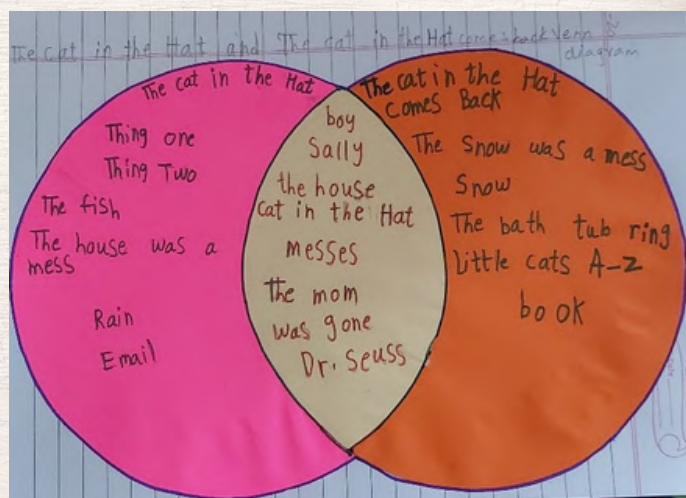 The cat in the Hat and The cat in the Hat comes back Venn
diagram
The cat in the Hat
Thing one
Thing Two
The fish
The house was a
mess
Rain
Email
boy
Sally
the house
cat in the Hat
messes
the mom
was gone
Dr. Seuss
The cat in the Hat
comes Back
The snow was a mess
Snow
The bath tub ring
little cats A-Z
book